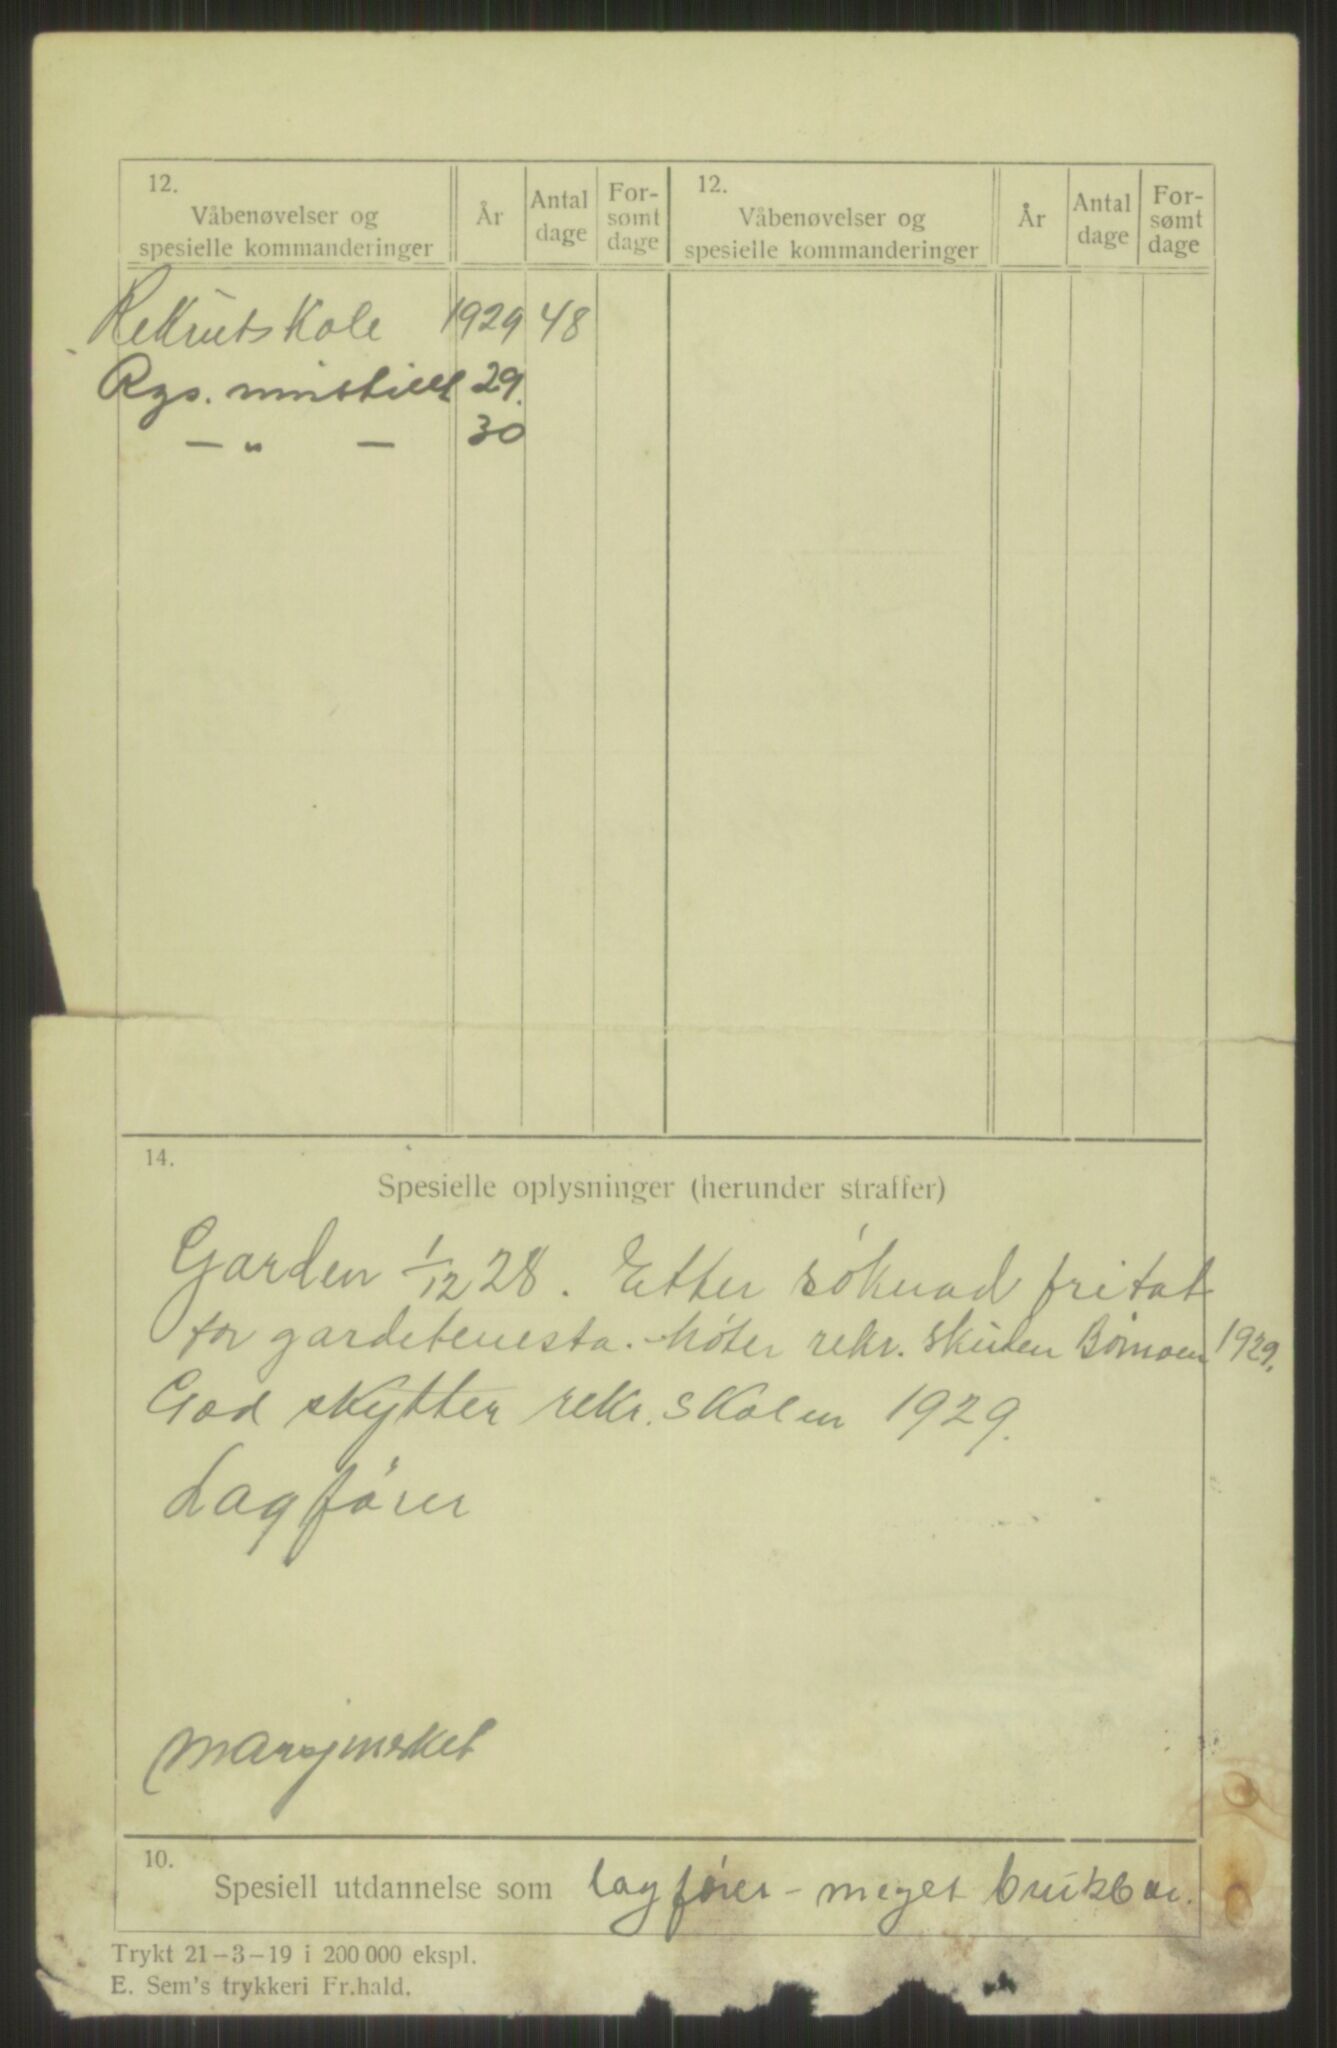 12.
Våbenøvelser og
spesielle kommanderinger
År
Antal
dage
For-
sømt
dage
12.
Våbenøvelser og
spesielle kommanderinger
År
Antal
dage
For-
sømt
dage
Rekrutskole 1929 48
Rgs. 29.
— " — 30
14.
Spesielle oplysninger (herunder straffer)
Garden 1/12 28. Etter söknad fritat
for gardetenesta. Möter rekr. skulen Bömoen 1929.
God skytter rekr. skolen 1929.
Lagförer
Marsjmerket
10.
Spesiell utdannelse som lagförer - meget brukbar.
Trykt 21-3-19 i 200 000 ekspl.
E. Sem's trykkeri Fr.hald.